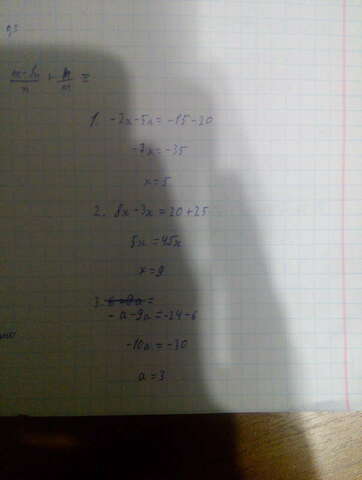 1. -2x-5x=-15-20
-7x=-35
x=5
2. 8x-3x=20+25
5x=45x
x=9
3. 6-9a=
-a-9a=-24-6
-10a=-30
a=3